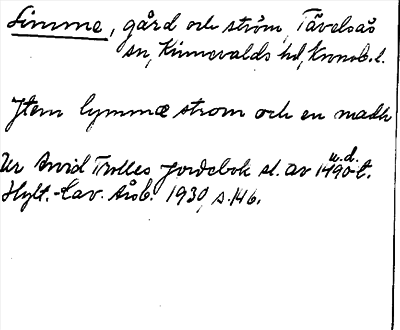 Limme, gård och ström, Tävelsås
sn, Kinnevalds hd, Kronob. l.
Jtem lymmæ strom och en madh
u.d.
Ur Arvid Trolles jordebok sl. av 1490-t.
Hylt.-Cav. Årsb. 1930, s. 146.